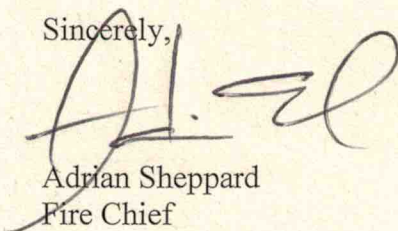 Sincerely,
Adrian Sheppard
Fire Chief